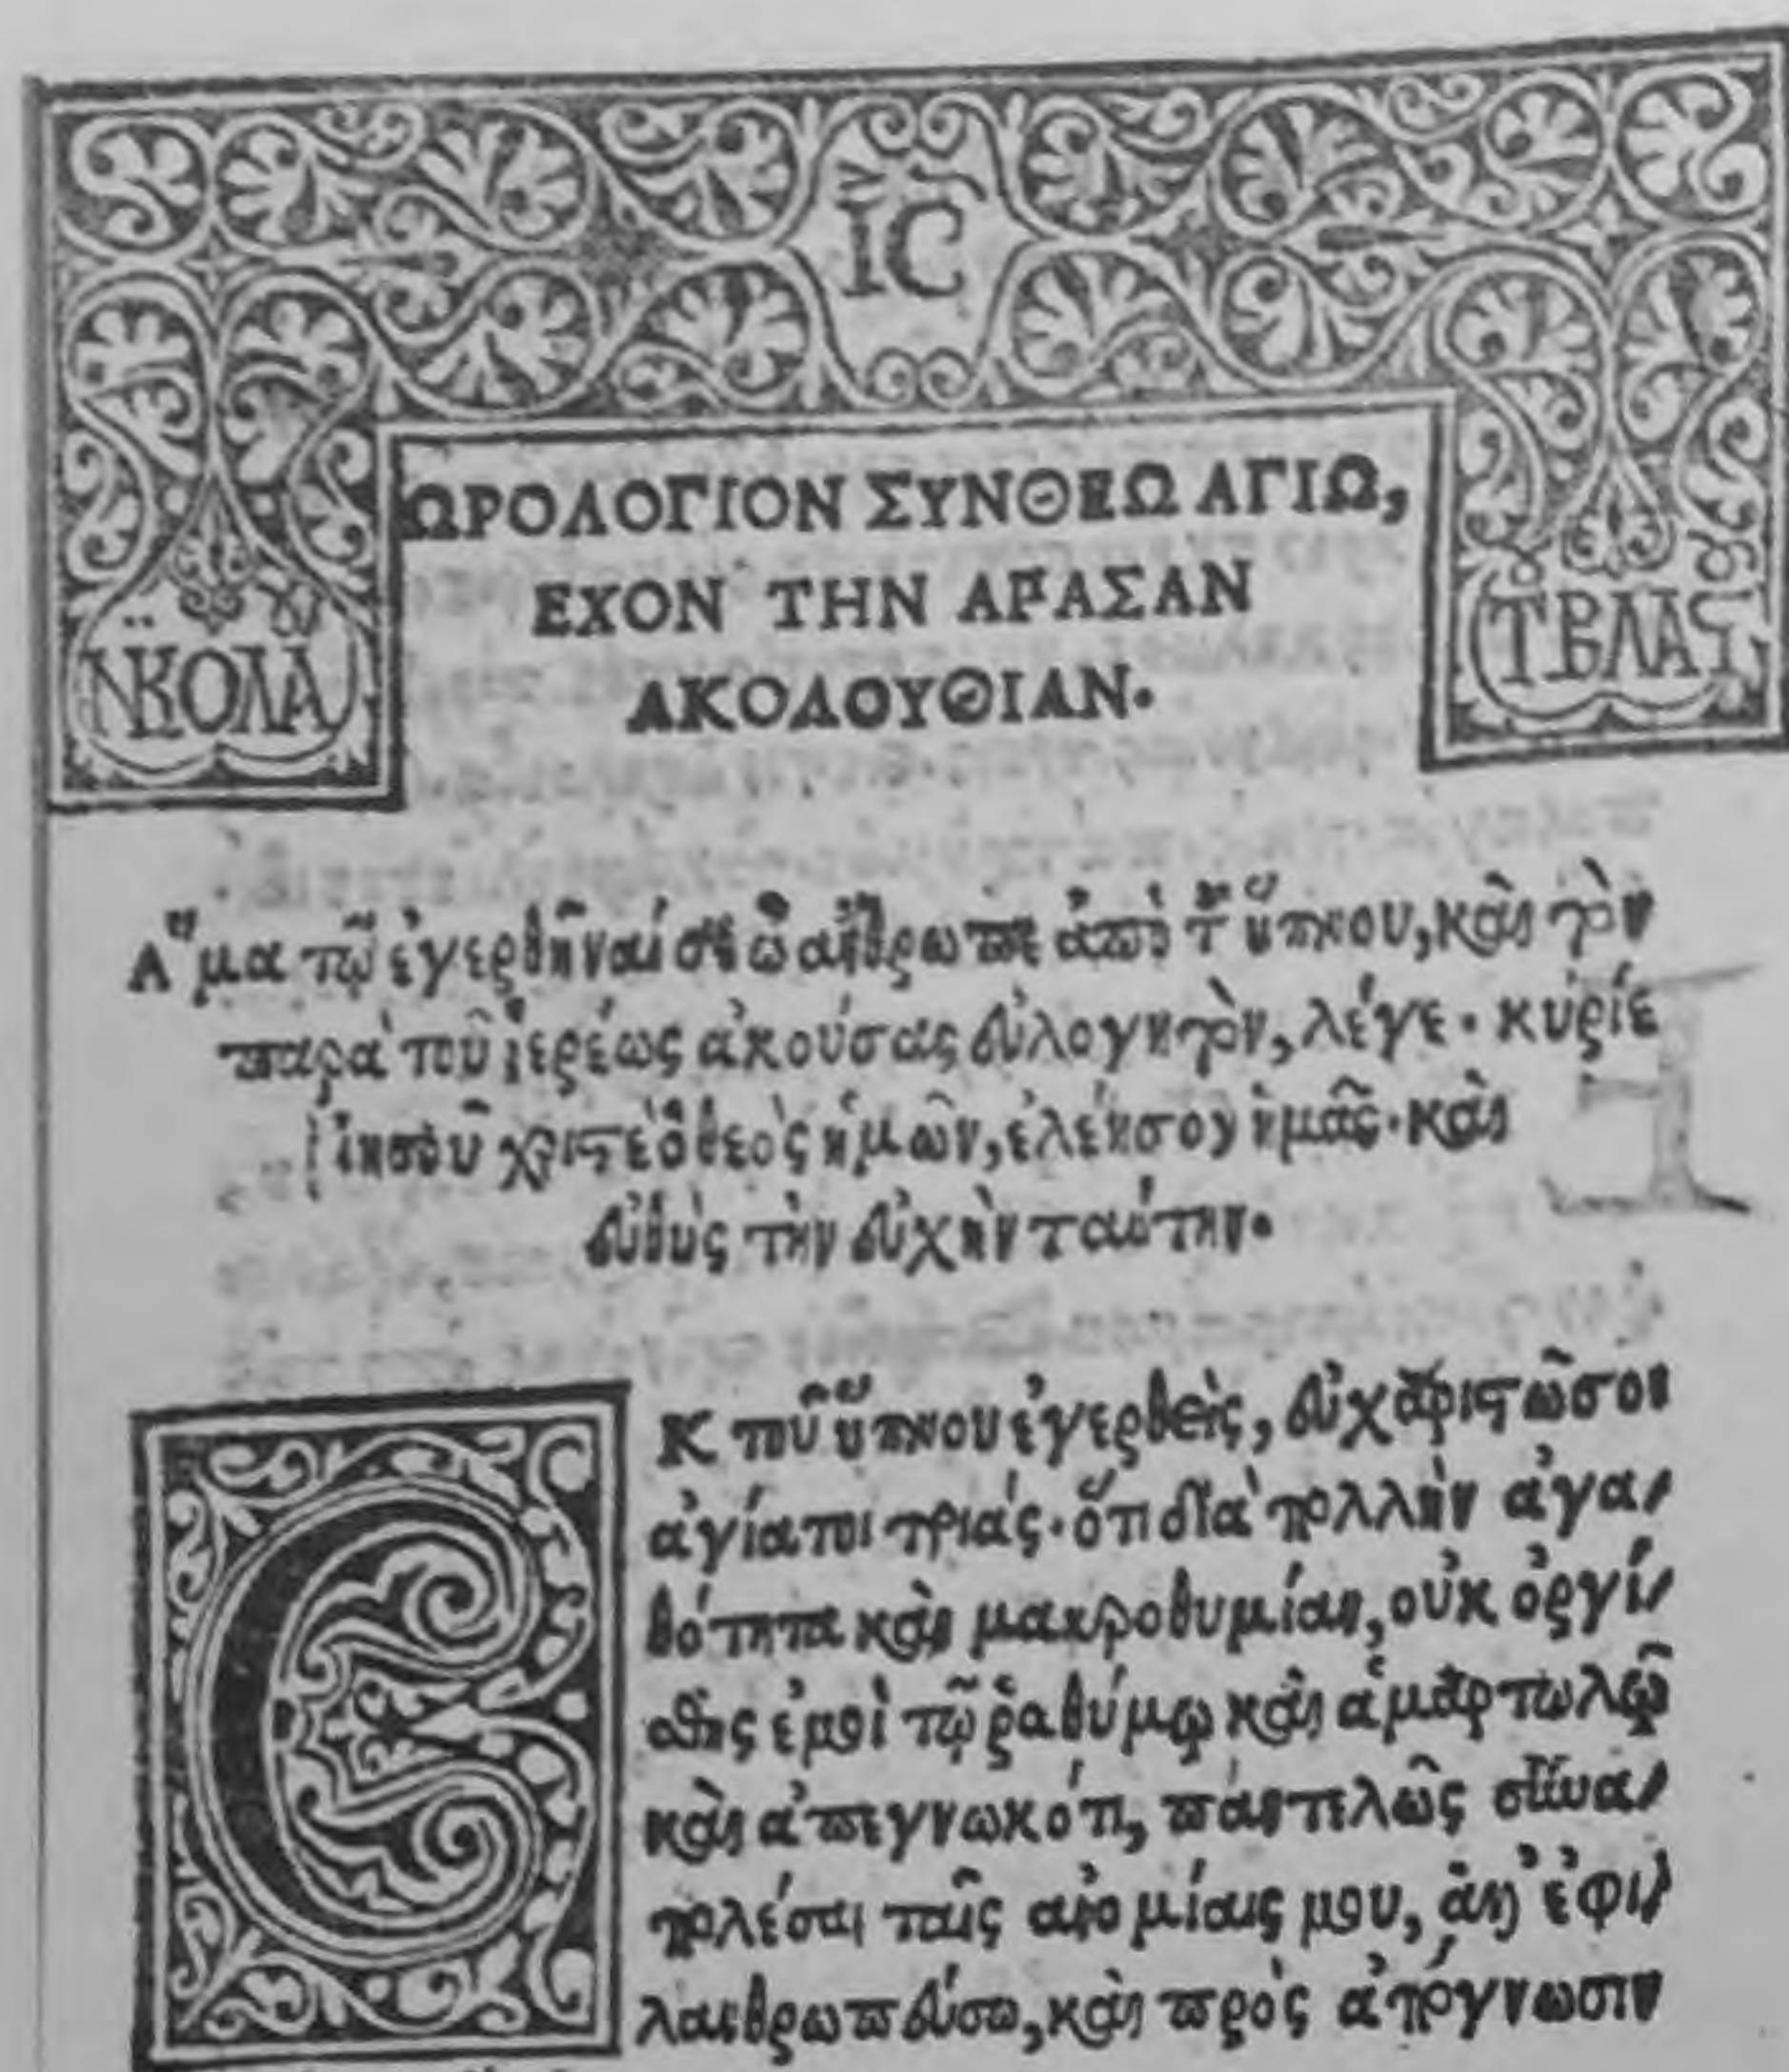 ΙC
ΩΡΟΛΟΓΙΟΝ ΣΥΝΘΕΩ ΑΓΙΩ,
ΕΧΟΝ ΤΗΝ ΑΠΑΣΑΝ
ΑΚΟΛΟΥΘΙΑΝ.
ΝΚΟΛΑ
ΤΒΛΑϚ
Α῞μα τῷ ἐγερθῆναί σε ὦ ἄνθρωπε ἀπὸ τ͂ ὕπνου, καὶ τὸν
παρὰ τοῦ ἱερέως ἀκούσας εὐλογητὸν, λέγε· κυρίε
ἰησοῦ χριστὲ ὁ θεὸς ἡμῶν, ἐλέησον ἡμᾶς· καὶ
εὐθὺς τὴν εὐχὴν ταύτην.
Ε
Κ τοῦ ὕπνου ἐγερθεὶς, εὐχαριστῶ σοι
ἁγία τοι τριάς· ὅτι διὰ πολλὴν ἀγα/
θότητα καὶ μακροθυμίαν, οὐκ ὀργί/
σθης ἐμοὶ τῷ ῥαθύμῳ καὶ ἁμαρτωλῷ
καὶ ἀπεγνωκότι, παντελῶς συνα/
πολέσαι ταῖς ἀνομίαις μου, ἀλλ᾽ ἐφι/
λανθρωπεύσω, καὶ πρὸς ἀπόγνωσιν